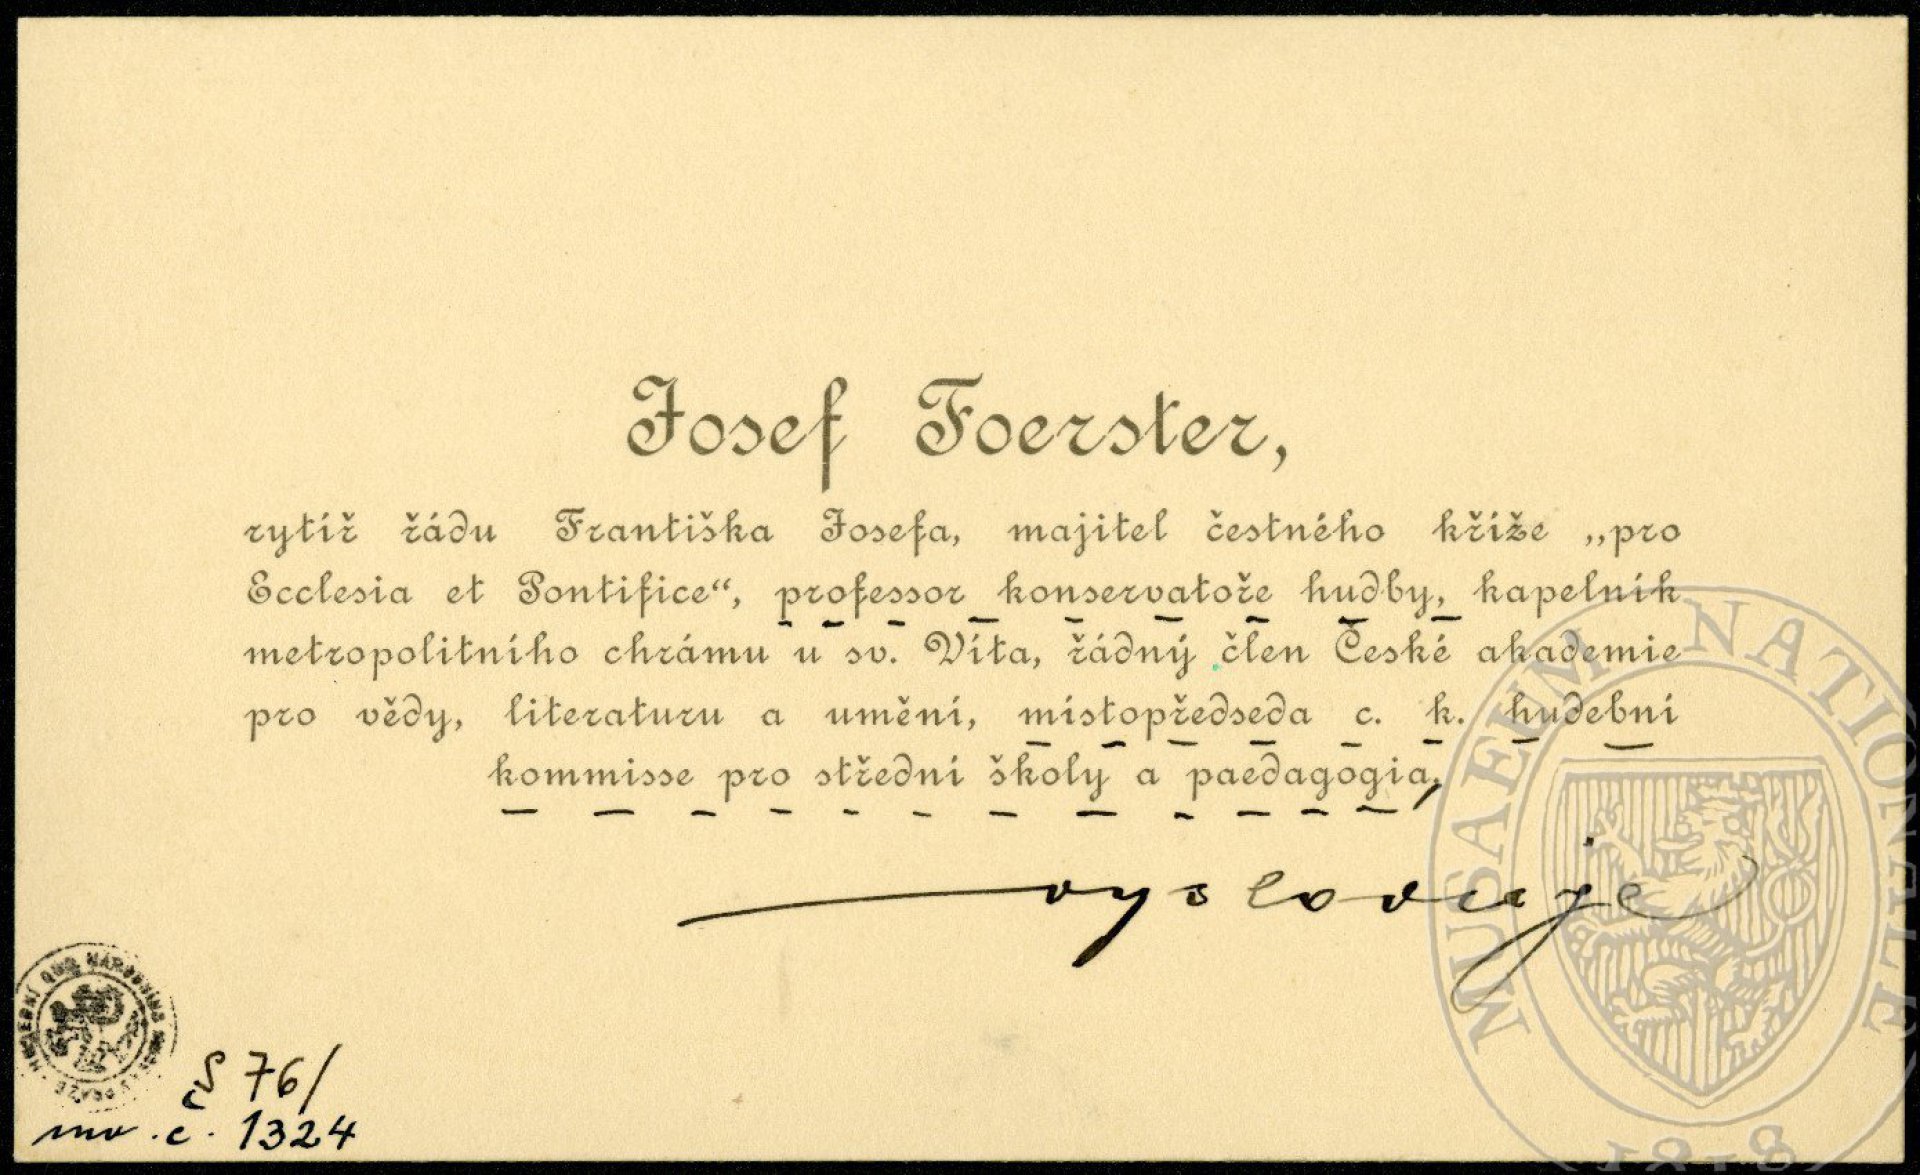 Josef Foerster,
rytíř řádu Františka Josefa, majitel čestného kříže „pro
Ecclesia et Pontifice“, professor konservatoře hudby, kapelník
metropolitního chrámu u sv. Víta, řádný člen České akademie
pro vědy, literaturu a umění, místopředseda c. k. hudební
kommisse pro střední školy a paedagogia,
vyslovuje
MUSAEUM NATIONALE
1818
HUDEBNÍ ODD. NÁRODNÍHO
76/
inv. č. 1324